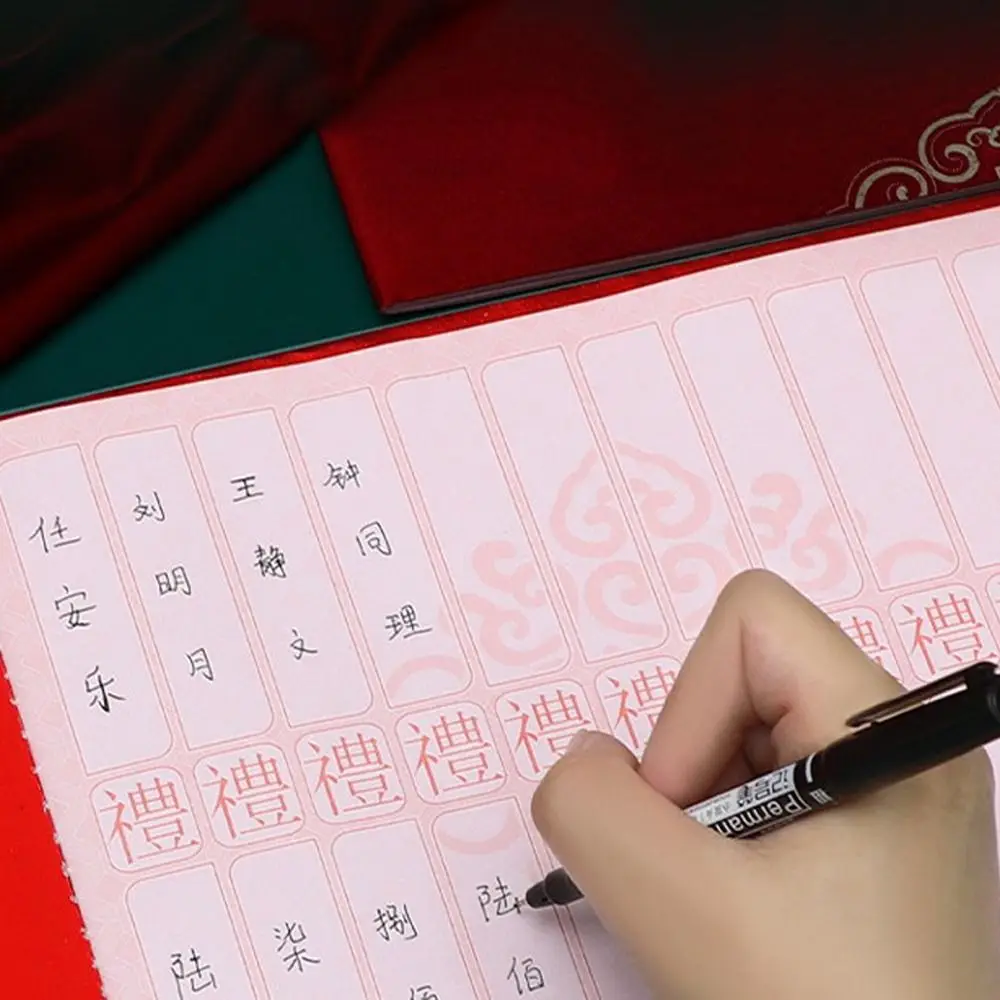 任安乐
刘明月
王静文
钟同理
禮
禮
禮
禮
禮
禮
禮
禮
陆
柒
捌佰
陆佰
记号笔
Perman